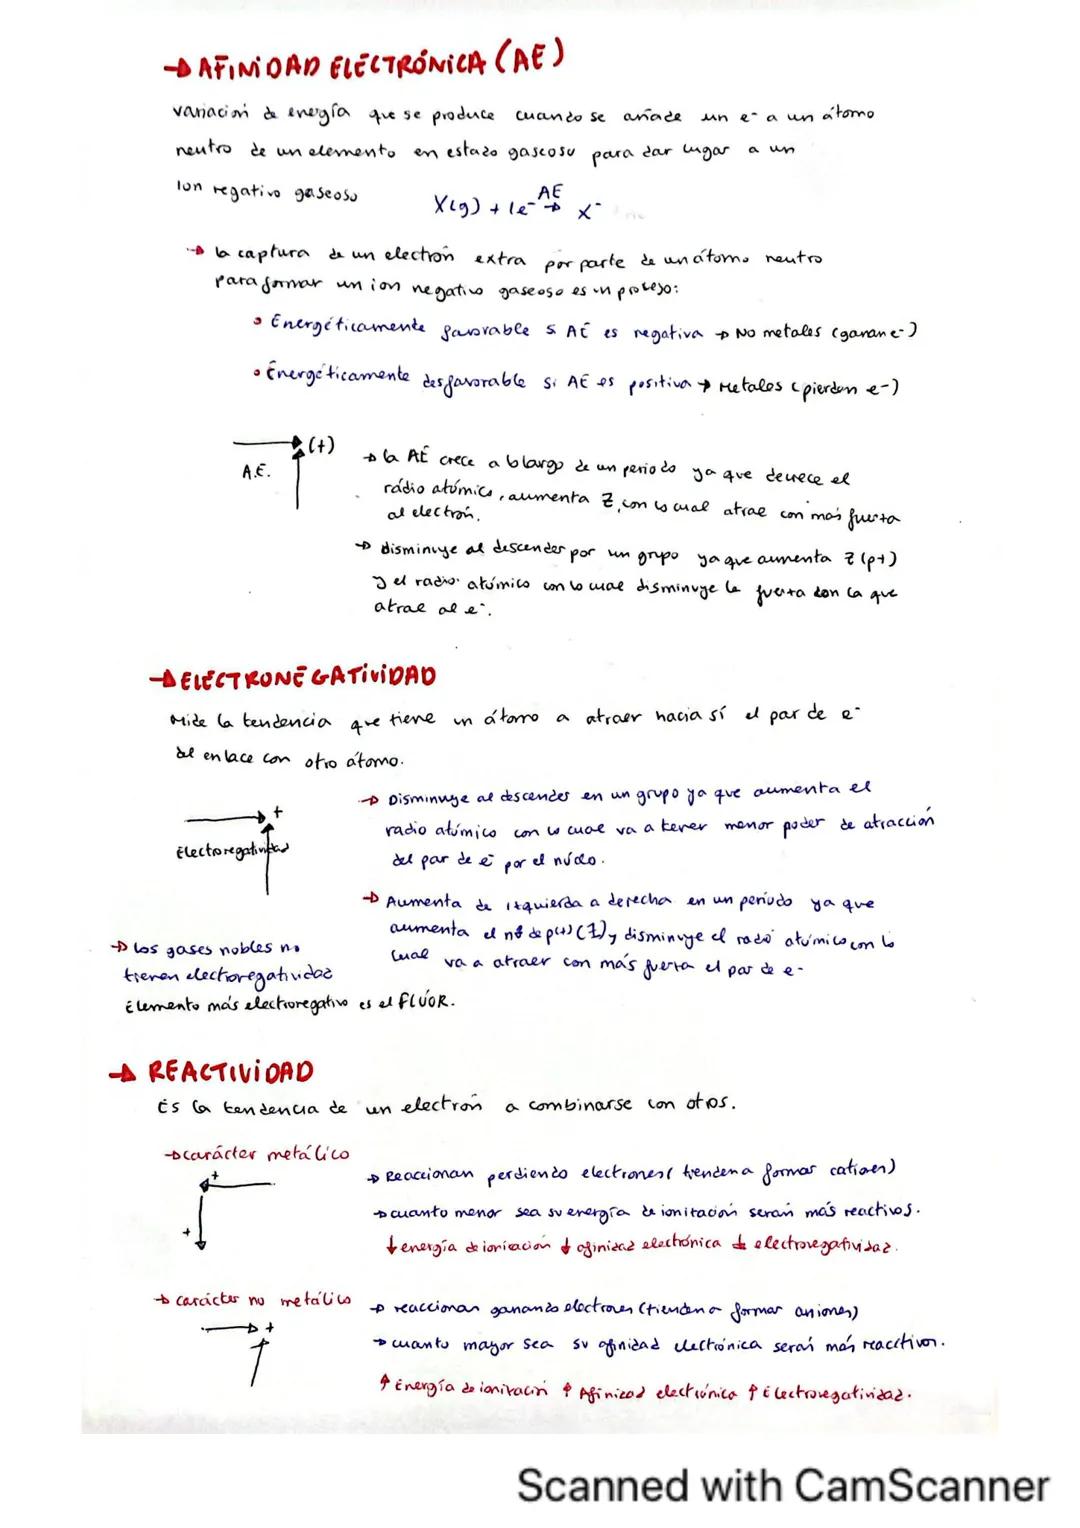 → AFINIDAD ELÉCTRÓNICA (AE)
variación de energía que se produce cuando se añade un e⁻ a un átomo
neutro de un elemento en estado gaseoso para dar lugar a un
Ion negativo gaseoso
X(g) + 1e⁻ AE → X⁻
→ la captura de un electrón extra por parte de un átomo neutro
para formar un ion negativo gaseoso es un proceso:
• Energéticamente favorable si AE es negativa → No metales (ganan e⁻)
• Energéticamente desfavorable si AE es positiva → Metales (pierden e⁻)
(+)
A.E.
→ la AE crece a lo largo de un periodo ya que decrece el
rádio atómico, aumenta Z, con lo cual atrae con más fuerza
al electrón.
→ disminuye al descender por un grupo ya que aumenta Z (p+)
y el radio atómico con lo cual disminuye la fuerza con la que
atrae al e⁻.
→ ELÉCTRONEGATIVIDAD
Mide la tendencia que tiene un átomo a atraer hacia sí el par de e⁻
del enlace con otro átomo.
+
Electronegatividad
→ Disminuye al descender en un grupo ya que aumenta el
radio atómico con lo cual va a tener menor poder de atracción
del par de e⁻ por el núcleo.
→ Aumenta de izquierda a derecha en un periodo ya que
aumenta el nº de p(+) (Z) y disminuye el radio atómico con lo
cual va a atraer con más fuerza el par de e-
→ Los gases nobles no
tienen electronegatividad
Elemento más electronegativo es el FLÚOR.
→ REACTIVIDAD
Es la tendencia de un electrón a combinarse con otros.
→ carácter metálico
+
+
→ Reaccionan perdiendo electrones (tienden a formar cationes)
→ cuanto menor sea su energía de ionización serán más reactivos.
↓ energía de ionización ↓ afinidad electrónica ↓ electronegatividad.
→ carácter no metálico
+
→ reaccionan ganando electrones (tienden a formar aniones)
→ cuanto mayor sea su afinidad electrónica serán más reactivos.
↑ Energía de ionización ↑ Afinidad electrónica ↑ Electronegatividad.
Scanned with CamScanner